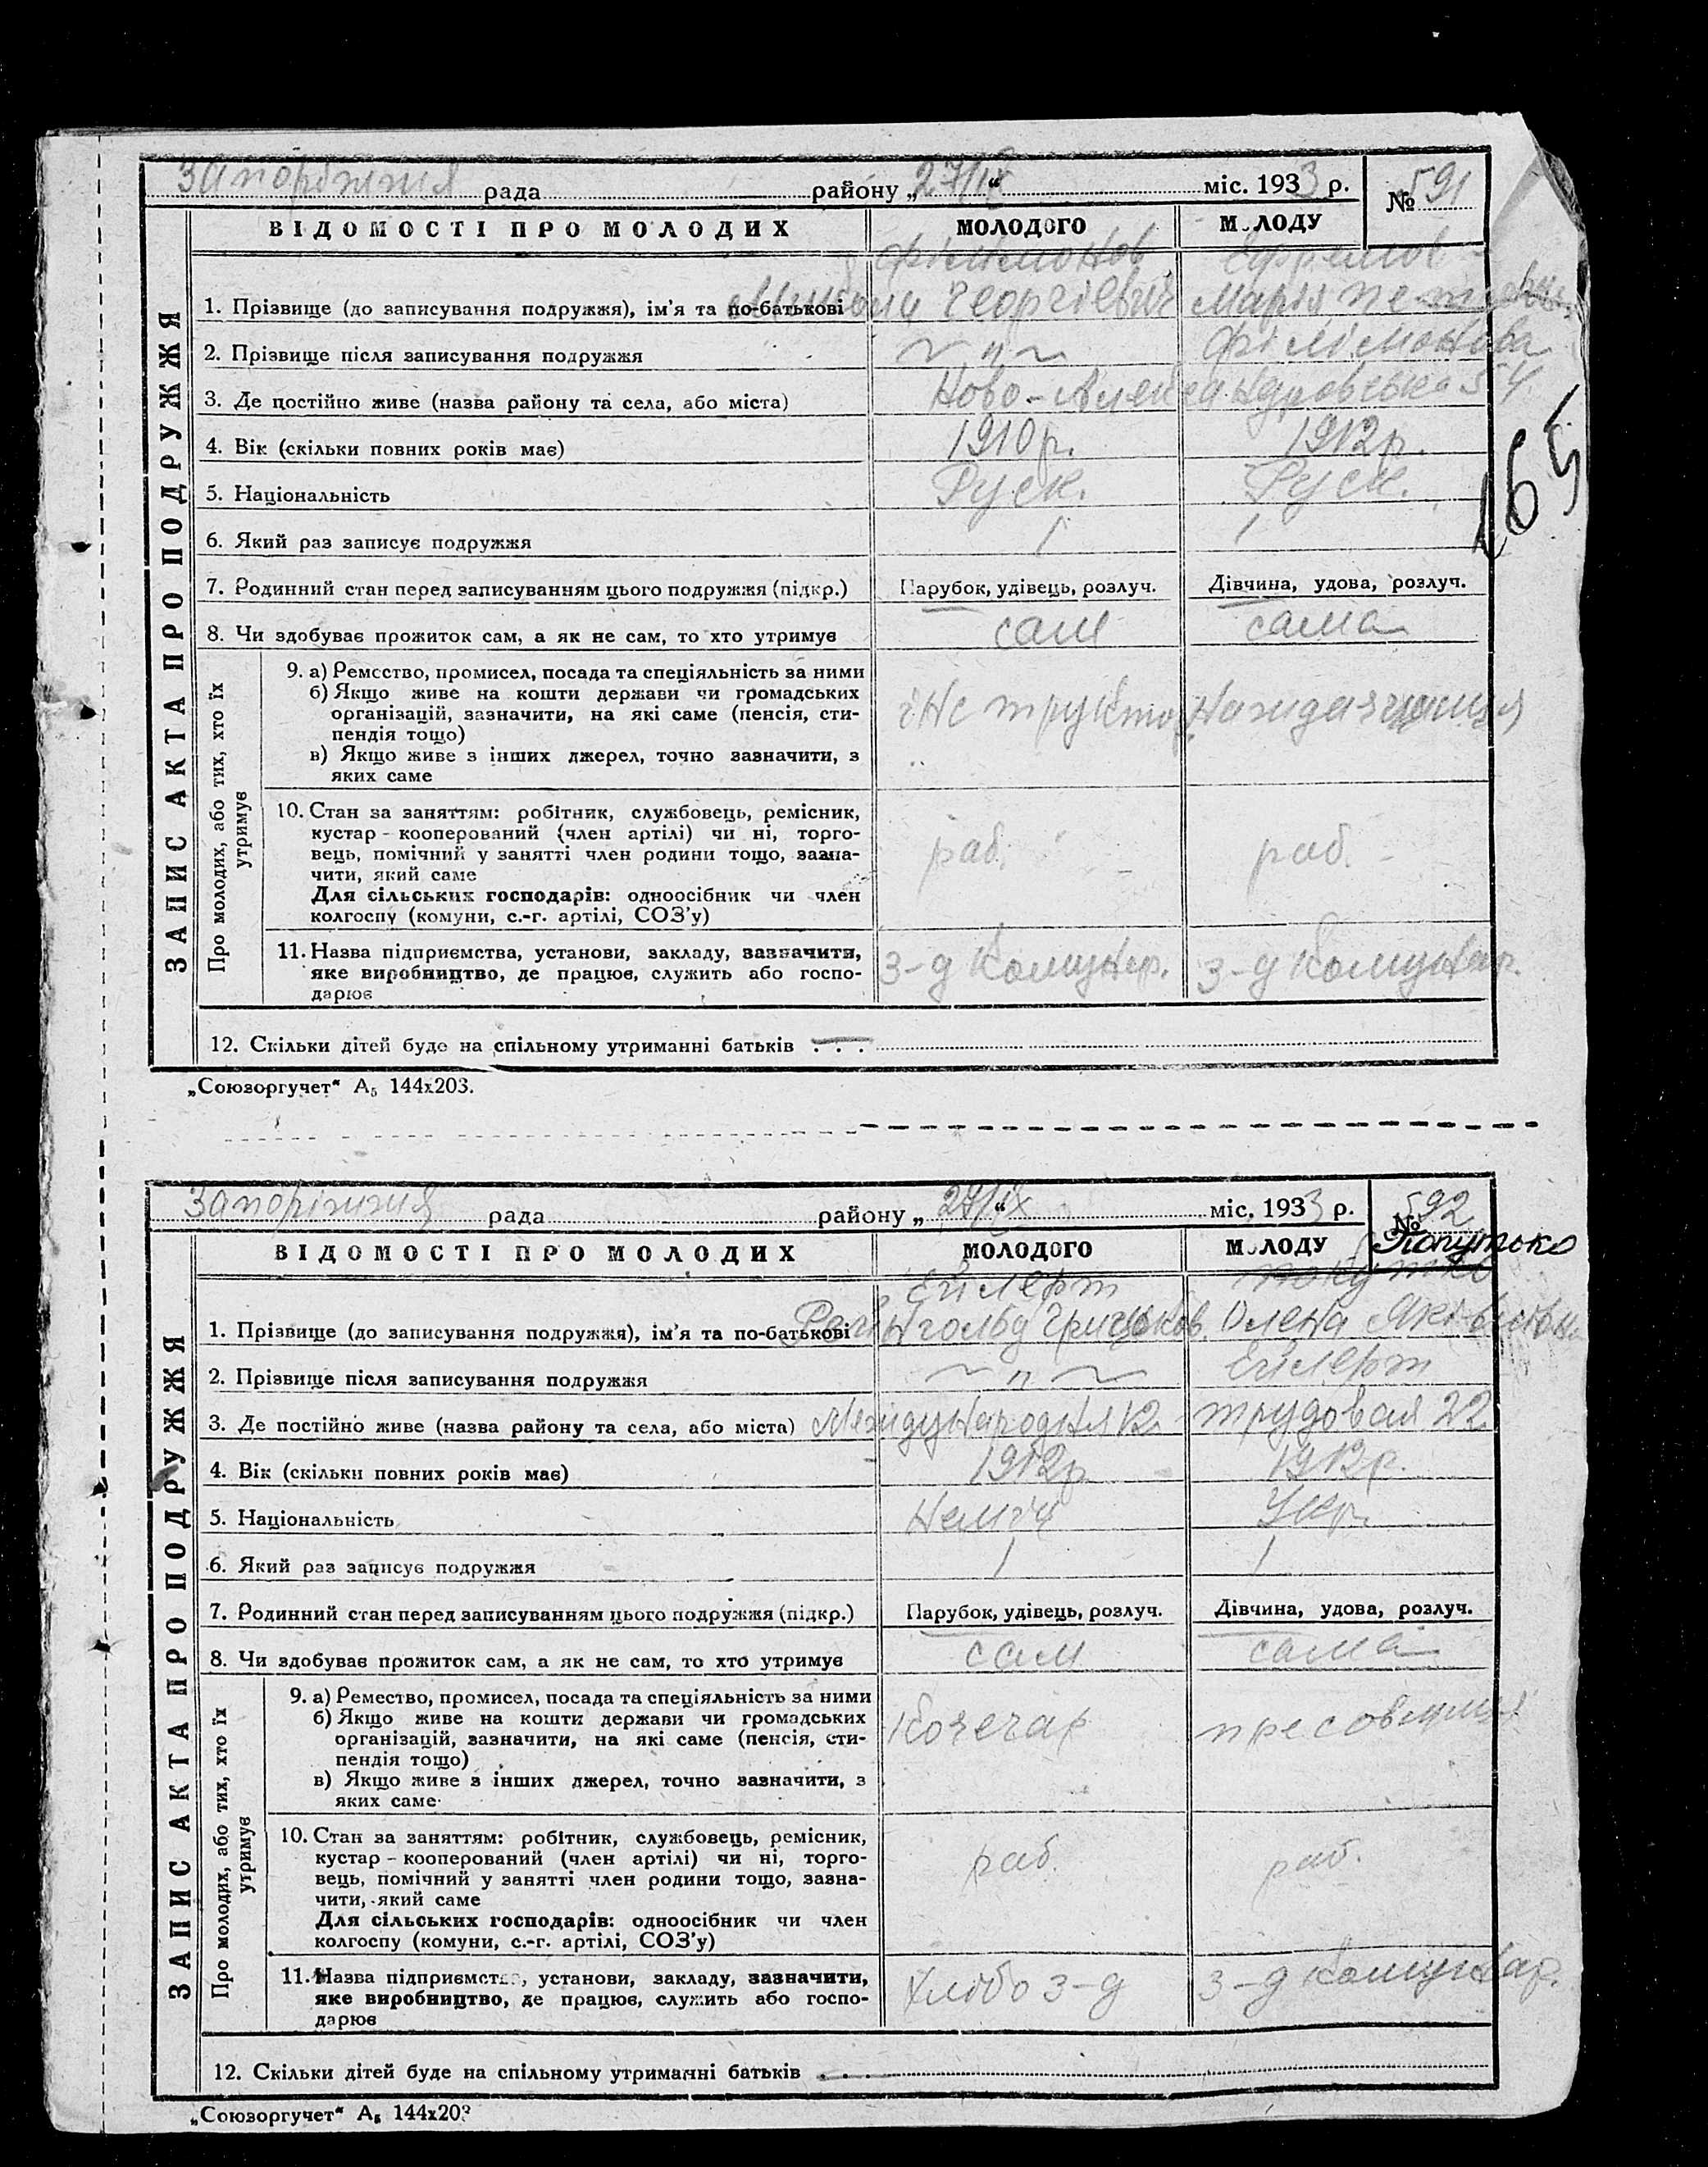 Запоріжжя рада району „27/ІХ“ міс. 1933 р. № 591
ВІДОМОСТІ ПРО МОЛОДИХ МОЛОДОГО МОЛОДУ
ЗАПИС АКТА ПРО ПОДРУЖЖЯ
Філімонов Ефремов
1. Прізвище (до записування подружжя), ім'я та по-батькові Георгіевич Марія
2. Прізвище після записування подружжя ~ „ ~ Філімонова
3. Де постійно живе (назва району та села, або міста) Ново-Александровська 54
4. Вік (скільки повних років має) 1910 р. 1912 р.
165
5. Національність Руск. Руск.
6. Який раз записує подружжя 1 1
7. Родинний стан перед записуванням цього подружжя (підкр.) Парубок, удівець, розлуч. Дівчина, удова, розлуч.
8. Чи здобуває прожиток сам, а як не сам, то хто утримує сам сама
Про молодих, або тих, хто їх утримує
9. а) Ремество, промисел, посада та спеціяльність за ними
б) Якщо живе на кошти держави чи громадських
організацій, зазначити, на які саме (пенсія, сти-
пендія тощо)
в) Якщо живе з інших джерел, точно зазначити, з
яких саме
10. Стан за заняттям: робітник, службовець, ремісник,
кустар-кооперований (член артілі) чи ні, торго-
вець, помічний у занятті член родини тощо, зазна-
чити, який саме раб. раб.
Для сільських господарів: одноосібник чи член
колгоспу (комуни, с.-г. артілі, СОЗ'у)
11. Назва підприємства, установи, закладу, зазначити,
яке виробництво, де працює, служить або госпо- з-д Комунар. з-д Комунар.
дарює
12. Скільки дітей буде на спільному утриманні батьків . . .
„Союзоргучет“ А5 144х203.
Запоріжжя рада району „27/ІХ“ міс. 1933 р. № 592
ВІДОМОСТІ ПРО МОЛОДИХ МОЛОДОГО МОЛОДУ
ЗАПИС АКТА ПРО ПОДРУЖЖЯ
Ейлерт
1. Прізвище (до записування подружжя), ім'я та по-батькові Олена
2. Прізвище після записування подружжя ~ „ ~ Ейлерт
3. Де постійно живе (назва району та села, або міста) 12 трудовая 22
4. Вік (скільки повних років має) 1912 р 1912 р.
5. Національність Немец Укр.
6. Який раз записує подружжя 1 1
7. Родинний стан перед записуванням цього подружжя (підкр.) Парубок, удівець, розлуч. Дівчина, удова, розлуч.
8. Чи здобуває прожиток сам, а як не сам, то хто утримує сам сама
Про молодих, або тих, хто їх утримує
9. а) Ремество, промисел, посада та спеціяльність за ними
б) Якщо живе на кошти держави чи громадських
організацій, зазначити, на які саме (пенсія, сти- Кочегар пресовщиця
пендія тощо)
в) Якщо живе з інших джерел, точно зазначити, з
яких саме
10. Стан за заняттям: робітник, службовець, ремісник,
кустар-кооперований (член артілі) чи ні, торго-
вець, помічний у занятті член родини тощо, зазна- раб. раб.
чити, який саме
Для сільських господарів: одноосібник чи член
колгоспу (комуни, с.-г. артілі, СОЗ'у)
11. Назва підприємства, установи, закладу, зазначити,
яке виробництво, де працює, служить або госпо- Хлібо з-д з-д Комунар.
дарює
12. Скільки дітей буде на спільному утриманні батьків
„Союзоргучет“ А5 144х203